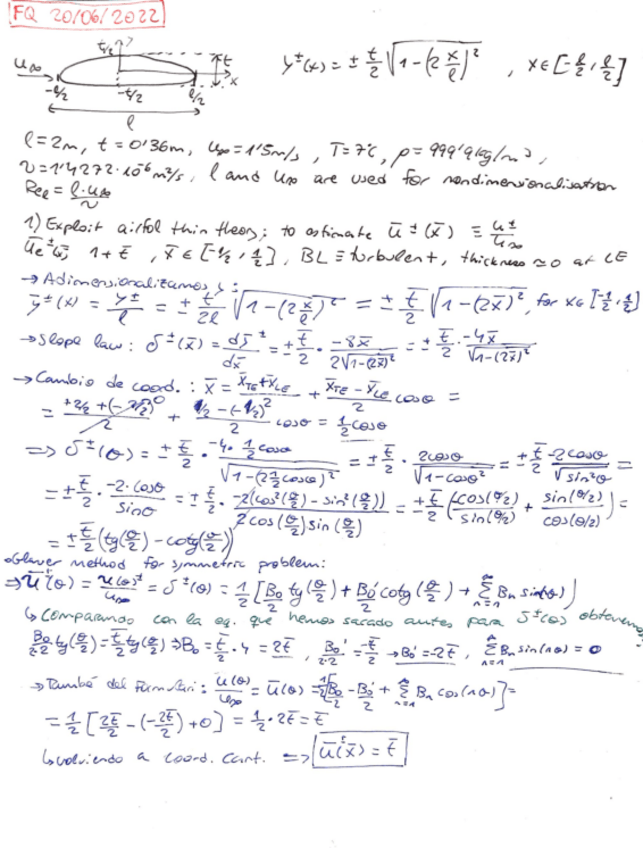 FQ 20/06/2022
t/2 y
U∞ t x
-l/2 -t/2 l/2
l
y±(x) = ± t/2 √(1-(2x/l)²) , x∈[-l/2, l/2]
l=2m, t=0'36m, U∞=1'5m/s, T=7ºC, ρ=999'9kg/m³,
ν=1'4272·10⁻⁶m²/s, l and U∞ are used for nondimensionalisation
Re_l = l·U∞/ν
1) Exploit airfol thin theory; to estimate ū±(x̄) ≡ u±/U∞
ūe±(x̄) 1+t̄, x̄∈[-1/2, 1/2], BL≡turbulent, thickness≃0 at LE
→Adimensionalizamos y:
ȳ±(x) = y±/l = ± t/2l √(1-(2x/l)²) = ± t̄/2 √(1-(2x̄)²), for x∈[-1/2, 1/2]
→Slope law: δ±(x̄) = dȳ±/dx̄ = ± t̄/2 · -8x̄/2√(1-(2x̄)²) = ± t̄/2 · -4x̄/√(1-(2x̄)²)
→Cambio de coord.: x̄ = (x̄TE+x̄LE)/2 + (x̄TE-x̄LE)/2 cosθ =
= (+1/2+(-1/2))/2 ⁰ + (1/2-(-1/2))/2 cosθ = 1/2 cosθ
=> δ±(θ) = ± t̄/2 · (-4·1/2 cosθ)/√(1-(2 1/2 cosθ)²) = ± t̄/2 · 2cosθ/√(1-cosθ²) = ± t̄/2 -2cosθ/√(sin²θ) =
= ± t̄/2 · -2·cosθ/sinθ = ± t̄/2 · -2(cos²(θ/2)-sin²(θ/2))/(2cos(θ/2)sin(θ/2)) = ± t̄/2 (-cos(θ/2)/sin(θ/2) + sin(θ/2)/cos(θ/2)) =
= ± t̄/2 (tg(θ/2) - cotg(θ/2))
•Glauer method for symmetric problem:
⇒ū±(θ) = u(θ)±/U∞ = δ±(θ) = 1/2 [B₀/2 tg(θ/2) + B₀'/2 cotg(θ/2) + Σ(n=1, ∞) Bn sin(nθ)]
↳Comparando con la eq. que hemos sacado antes para δ±(θ) obtenemos
B₀/2·2 tg(θ/2) = t̄/2 tg(θ/2) ⇒ B₀ = t̄/2 · 4 = 2t̄, B₀'/2·2 = -t̄/2 → B₀' = -2t̄, Σ(n=1, ∞) Bn sin(nθ) = 0
→També del formulari: u(θ)/U∞ = ū(θ) = 1/2[B₀/2 - B₀'/2 + Σ(n=1, ∞) Bn cos(nθ)] =
= 1/2 [2t̄/2 - (-2t̄/2) + 0] = 1/2 · 2t̄ = t̄
↳volviendo a coord. cart. => ū±(x̄) = t̄